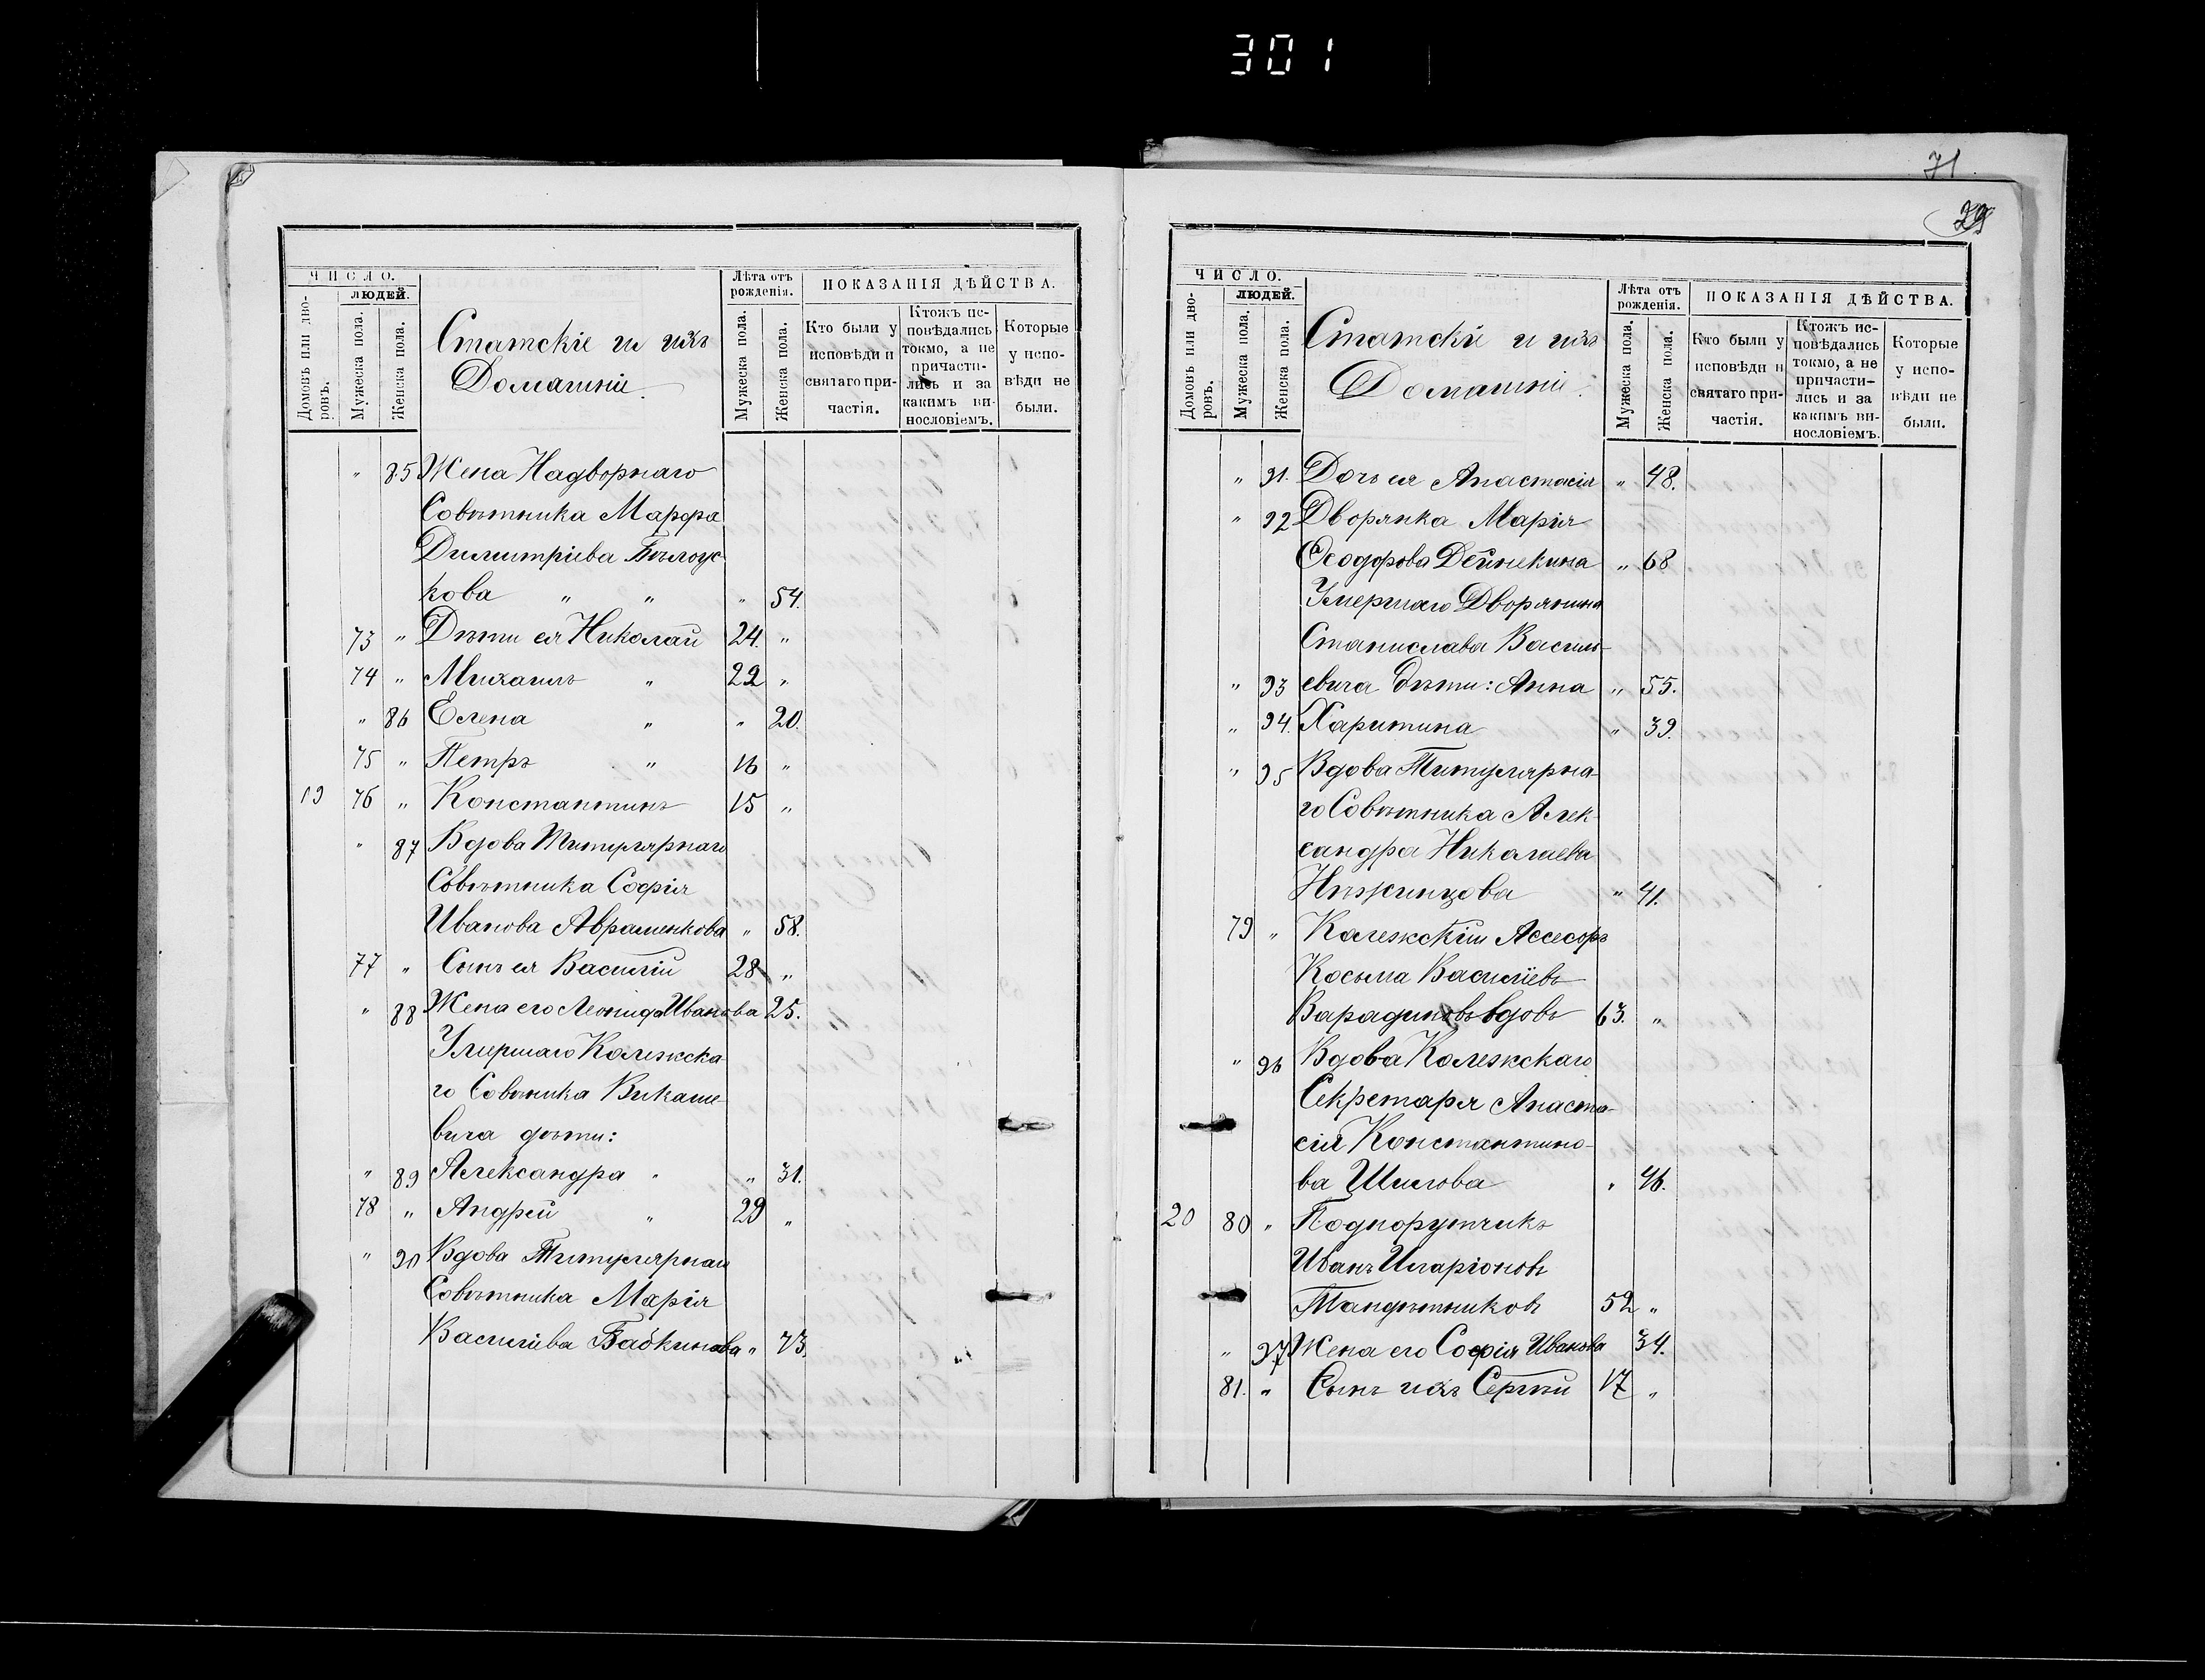 301
71
29
ЧИСЛО.
Домовъ или дворовъ.
людей.
Мужеска пола.
Женска пола.
Статскіе и ихъ
Домашніе.
Лѣта отъ рожденія.
Мужеска пола.
Женска пола.
ПОКАЗАНІЯ ДѢЙСТВА.
Кто были у исповѣди и святаго причастія.
Ктожъ исповѣдались токмо, а не причастились и за какимъ винословіемъ.
Которые у исповѣди не были.
" 85 Жена Надворнаго
Совѣтника Марфа
Димитріева Бѣлоус-
кова " " " 54.
73 " Дѣти ея Николай 24. "
74 " Михаилъ " 22 "
" 86 Елена " " 20.
75 " Петръ " 16 "
19 76 " Константинъ 15 "
" 87 Вдова Титулярнаго
Совѣтника Софія
Иванова Авраменкова " 58.
77 " Сынъ ея Василій 28 "
" 88 Жена его Леонида Иванова 25.
Умершаго Колежска-
го Совѣтника Викаше-
вича дѣти:
" 89 Александра " " 31.
78 " Андрей " 29 "
" 90 Вдова Титулярнаго
Совѣтника Марія
Василіева Бабкинова " 73.
ЧИСЛО.
Домовъ или дворовъ.
людей.
Мужеска пола.
Женска пола.
Статскіе и ихъ
Домашніе.
Лѣта отъ рожденія.
Мужеска пола.
Женска пола.
ПОКАЗАНІЯ ДѢЙСТВА.
Кто были у исповѣди и святаго причастія.
Ктожъ исповѣдались токмо, а не причастились и за какимъ винословіемъ.
Которые у исповѣди не были.
" 91. Дочь ея Анастасія " 48.
" 92 Дворянка Марія
Ѳеодорова Дейнекина " 68
Умершаго Дворянина
Станислава Василь-
" 93 евича дѣти: Анна " 55.
" 94. Харитина " 39.
" 95 Вдова Титулярна-
го Совѣтника Алек-
сандра Николаева
Нѣжинцова " 41.
79 " Колежскій Ассесоръ
Косьма Василіевъ
Варадиновъ вдовъ 63. "
" 96 Вдова Колежскаго
Секретаря Анаста-
сія Константино-
ва Шилова " 46.
20 80 " Подпорутчикъ
Иванъ Иларіоновъ
52 "
" 97 Жена его Софія Иванова 34.
81. " Сынъ ихъ Сергѣй 17 "